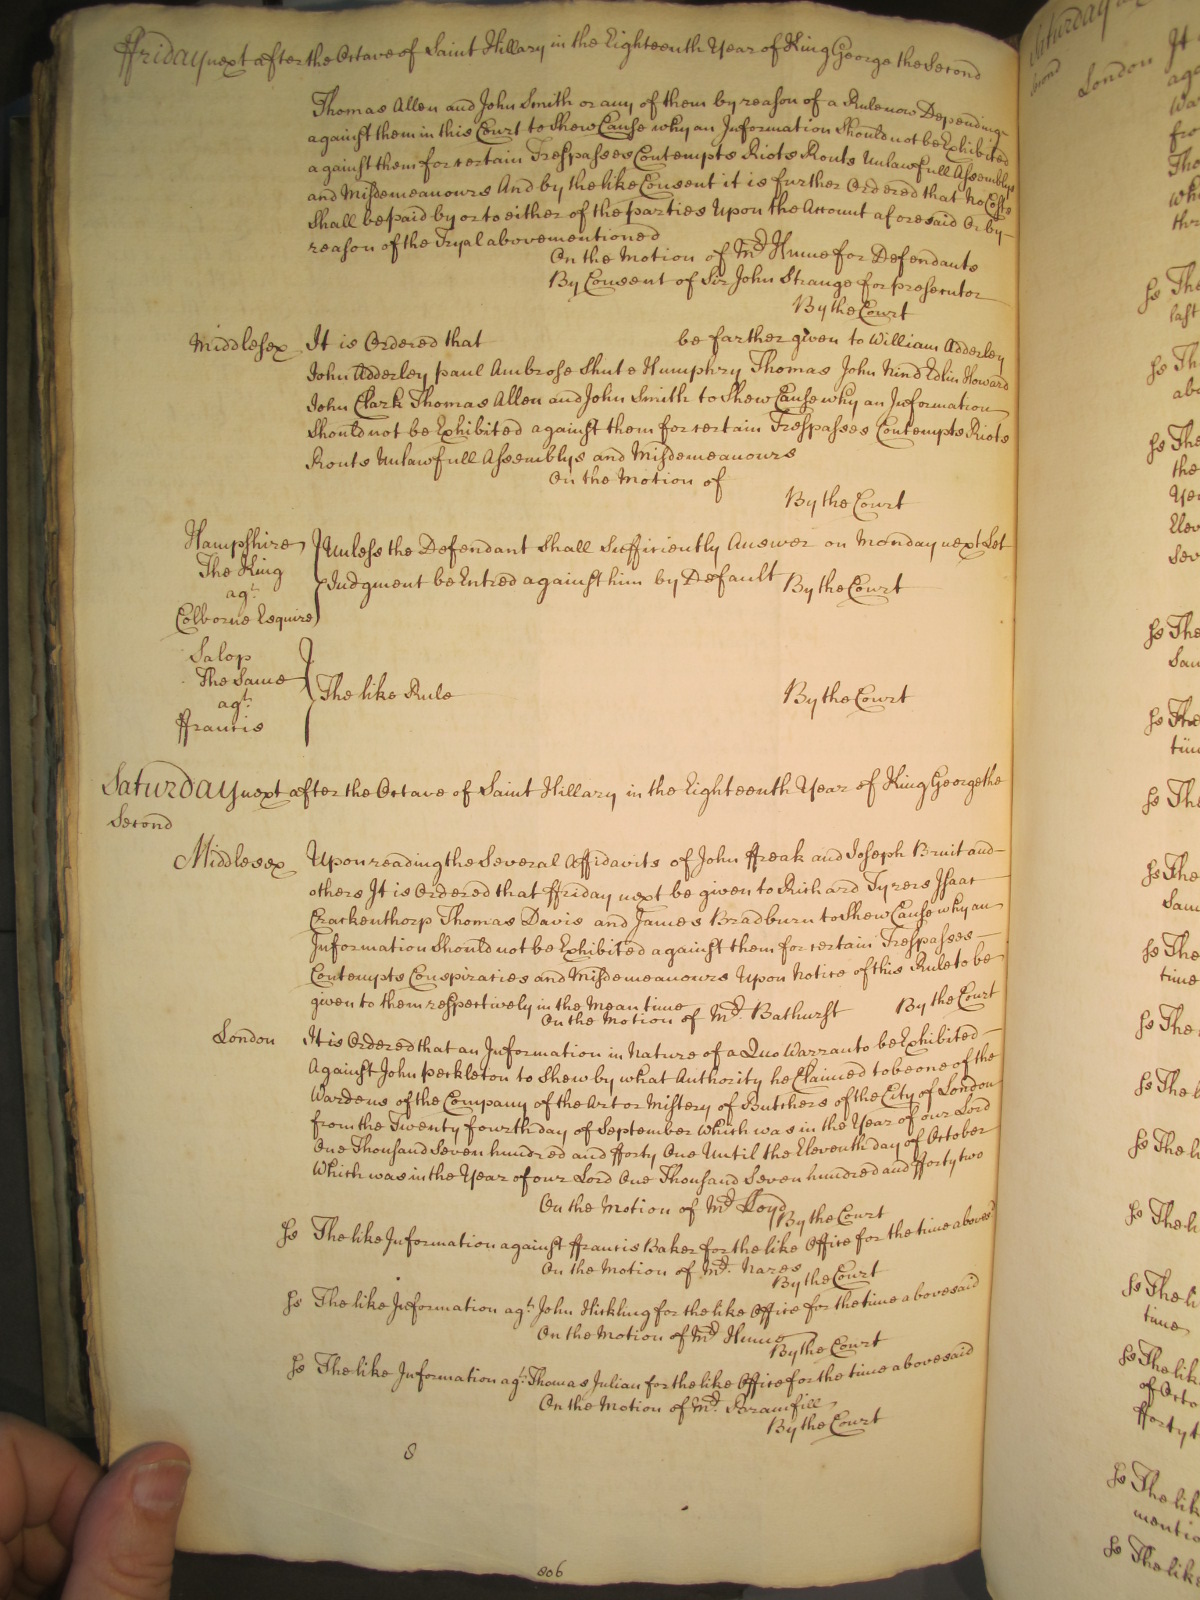 ffriday next after the Octave of Saint Hillary in the Eighteenth Year of King George the Second
Thomas Allen and John Smith or any of them by reason of a Rule now Depending
against them in this Court to Shew Cause why an Information Should not be Exhibited
against them for certain Trespasses Contempts Riots Routs Unlawfull Assemblys
and Misdemeanours And by the like Consent it is further Ordered that No Costs
Shall be paid by or to either of the parties Upon the Account aforesaid Or by
reason of the Tryal abovementioned
On the Motion of Mr. Hume for Defendants
By Consent of Sir John Strange for prosecutor
By the Court
Middlesex It is Ordered that be farther given to William Adderley
John Adderley paul Ambrose Shute Humphry Thomas John Nind Edlin Howard
John Clark Thomas Allen and John Smith to Shew Cause why an Information
Should not be Exhibited against them for certain Trespasses Contempts Riots
Routs Unlawfull Assemblys and Misdemeanours
On the Motion of
By the Court
Hampshire
The King
agt.
Colborne Esquire
Unless the Defendant Shall Sufficiently Answer on Monday next Let
Judgment be Entred against him by Default By the Court
Salop
The Same
agt.
ffrancis
The like Rule By the Court
Saturday next after the Octave of Saint Hillary in the Eighteenth Year of King George the
Second
Middlesex Upon reading the Several Affidavits of John ffreak and Joseph Bruit and
others It is Ordered that ffriday next be given to Richard Tyrers Isaac
Crackenthorp Thomas Davis and James Bradburn to Shew Cause why an
Information Should not be Exhibited against them for certain Trespasses
Contempts Conspiracies and Misdemeanours Upon Notice of this Rule to be
given to them respectively in the Mean time
On the Motion of Mr. Bathurst By the Court
London It is Ordered that an Information in Nature of a Quo Warranto be Exhibited
Against John peckleton to Shew by what Authority he Claimed to be one of the
Wardens of the Company of the Art or Mistery of Butchers of the City of London
from the Twenty fourth day of September which was in the Year of our Lord
One Thousand Seven hundred and fforty One Until the Eleventh day of October
Which was in the Year of our Lord One Thousand Seven hundred and fforty two
On the Motion of Mr. Lloyd
By the Court
Ss The like Information against ffrancis Baker for the like Office for the time abovesd
On the Motion of Mr. Nares
By the Court
Ss The like Information agt. John Hickling for the like Office for the time abovesaid
On the Motion of Mr. Hume
By the Court
Ss The like Information agt. Thomas Julian for the like Office for the time abovesaid
On the Motion of Mr. Bramfill
By the Court
8
806
Saturday
Second
London